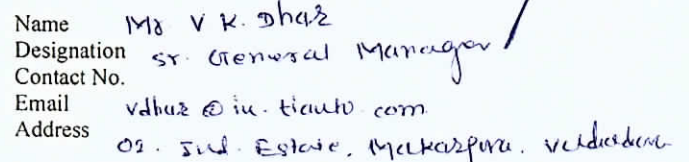 Name Mr V K. Dhar
Designation Sr. General Manager
Contact No.
Email vdhar@in.tiauto.com
Address 02. Ind. Estate, Makarpura.